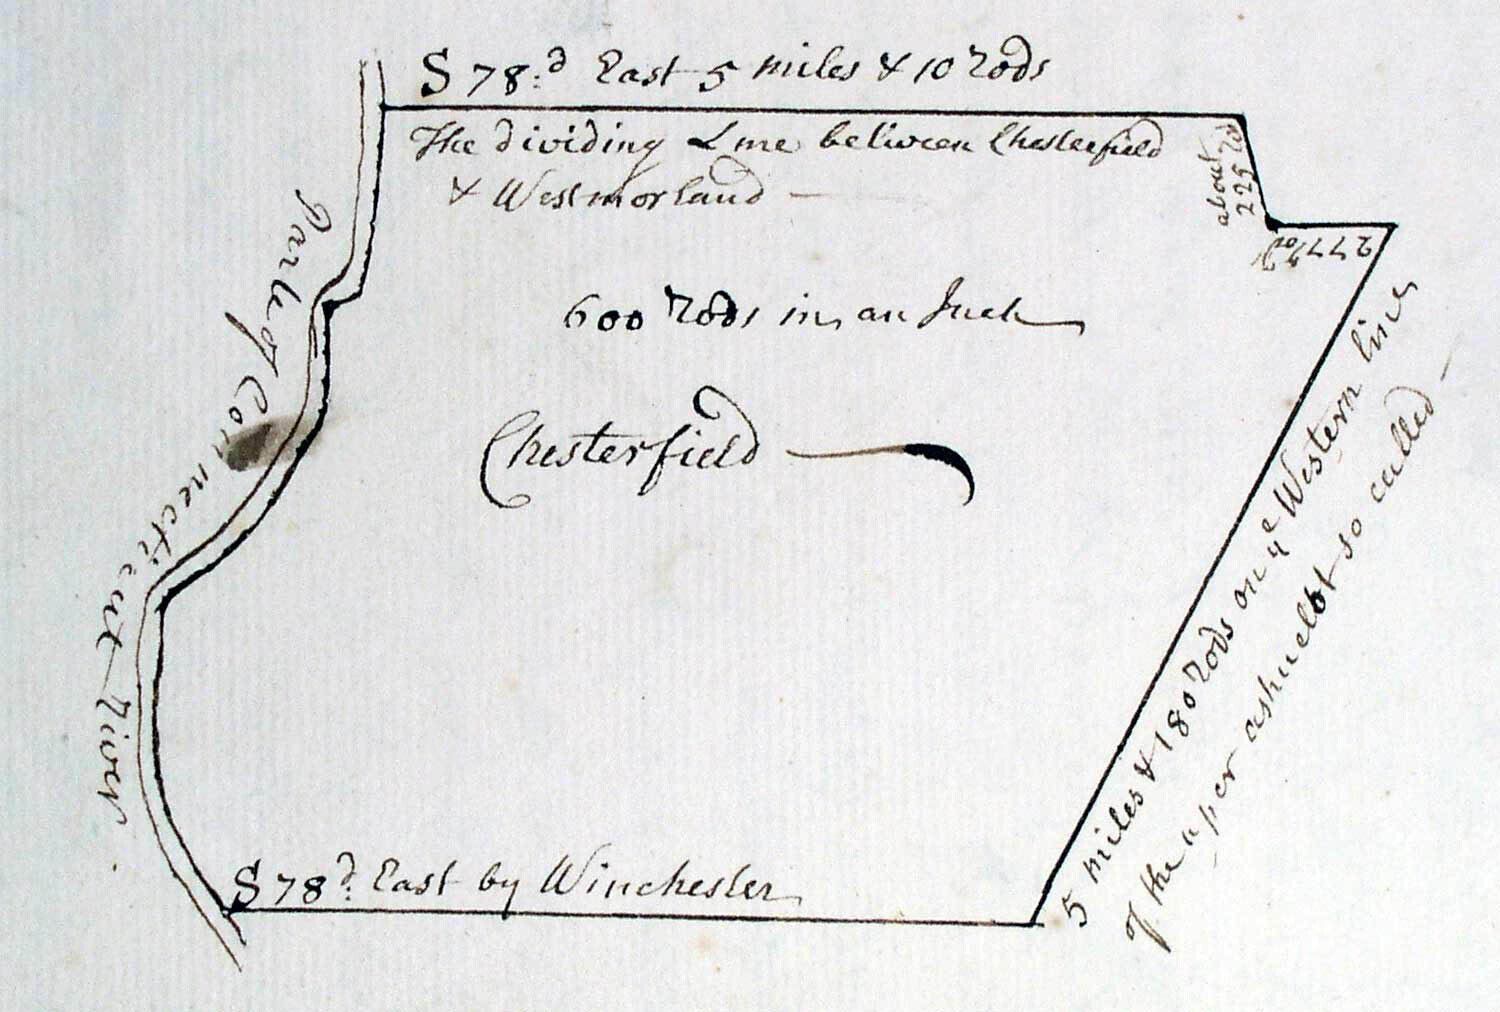 S 78:d East 5 miles & 10 Rods
The dividing Line between Chesterfield
& Westmorland
about
225 Rd
277 Rod
600 Rods in an Inch
Part of Connecticut River
Chesterfield
5 miles & 180 Rods on ye Western line
of the upper ashuelot so called
S 78d. East by Winchester